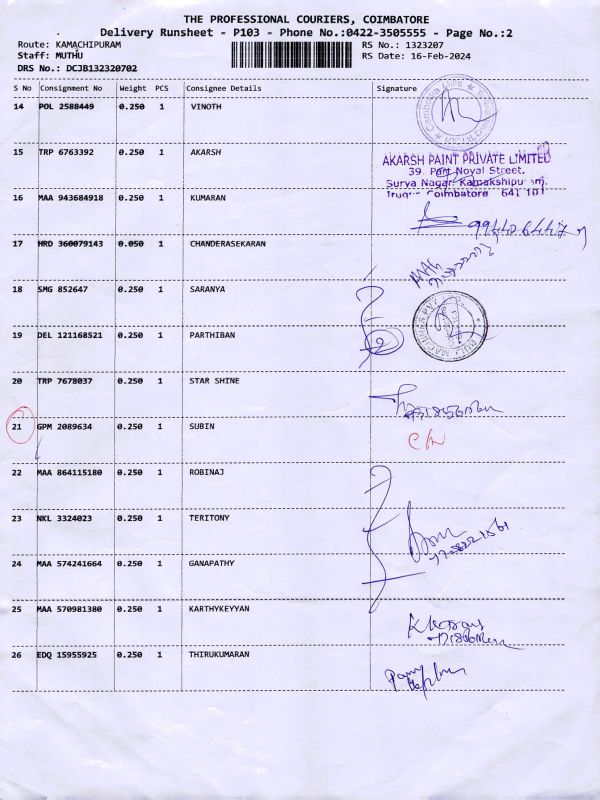 THE PROFESSIONAL COURIERS, COIMBATORE
Delivery Runsheet - P103 - Phone No.:0422-3505555 - Page No.:2
Route: KAMACHIPURAM
RS No.: 1323207
Staff: MUTHU
RS Date: 16-Feb-2024
DRS No.: DCJB132320702
S No Consignment No Weight PCS Consignee Details Signature
14 POL 2588449 0.250 1 VINOTH
15 TRP 6763392 0.250 1 AKARSH
AKARSH PAINT PRIVATE LIMITED
39, Port Noyal Street,
Surya Nagar, Kamakshipu am,
Coimbatore 641 101
16 MAA 943684918 0.250 1 KUMARAN
17 HRD 360079143 0.050 1 CHANDERASEKARAN
18 SMG 852647 0.250 1 SARANYA
19 DEL 121168521 0.250 1 PARTHIBAN
2
20 TRP 7678037 0.250 1 STAR SHINE
21 GPM 2089634 0.250 1 SUBIN
22 MAA 864115180 0.250 1 ROBINAJ
23 NKL 3324023 0.250 1 TERITONY
24 MAA 574241664 0.250 1 GANAPATHY
25 MAA 570981380 0.250 1 KARTHYKEYYAN
26 EDQ 15955925 0.250 1 THIRUKUMARAN